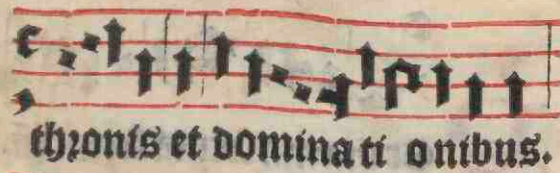 thronis et domina ti onibus.